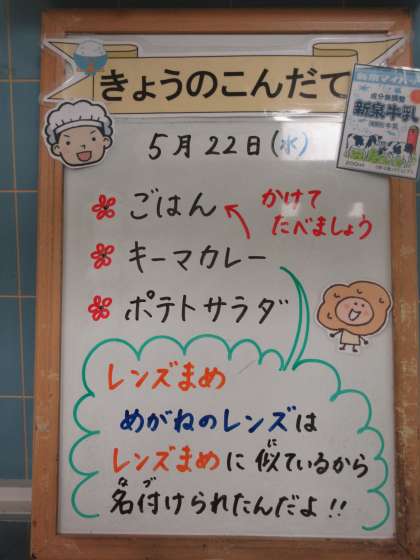 きょうのこんだて
新泉牛乳
5月22日(水)
ごはん
かけて
たべましょう
キーマカレー
ポテトサラダ
レンズまめ
めがねのレンズは
レンズまめに似ているから
名付けられたんだよ!!